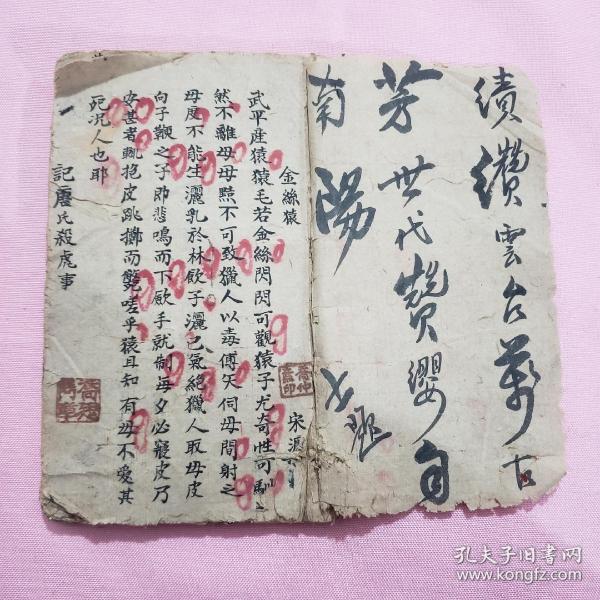 績纘雲台萬古
芳世代簪纓自
南陽
金絲猿 宋濂
武平產猿猿毛若金絲閃閃可觀猿子尤奇性可馴
然不離母母黠不可致獵人以毒傅矢伺母間射之
母度不能生灑乳於林飲子灑已氣絕獵人取母皮
向子鞭之子即悲鳴而下歛手就制每夕必寢皮乃
安甚者輒抱皮跳擲而斃嗟乎猿且知有母不愛其
死況人也耶
記唐氏殺虎事
孔夫子旧书网
www.kongfz.com